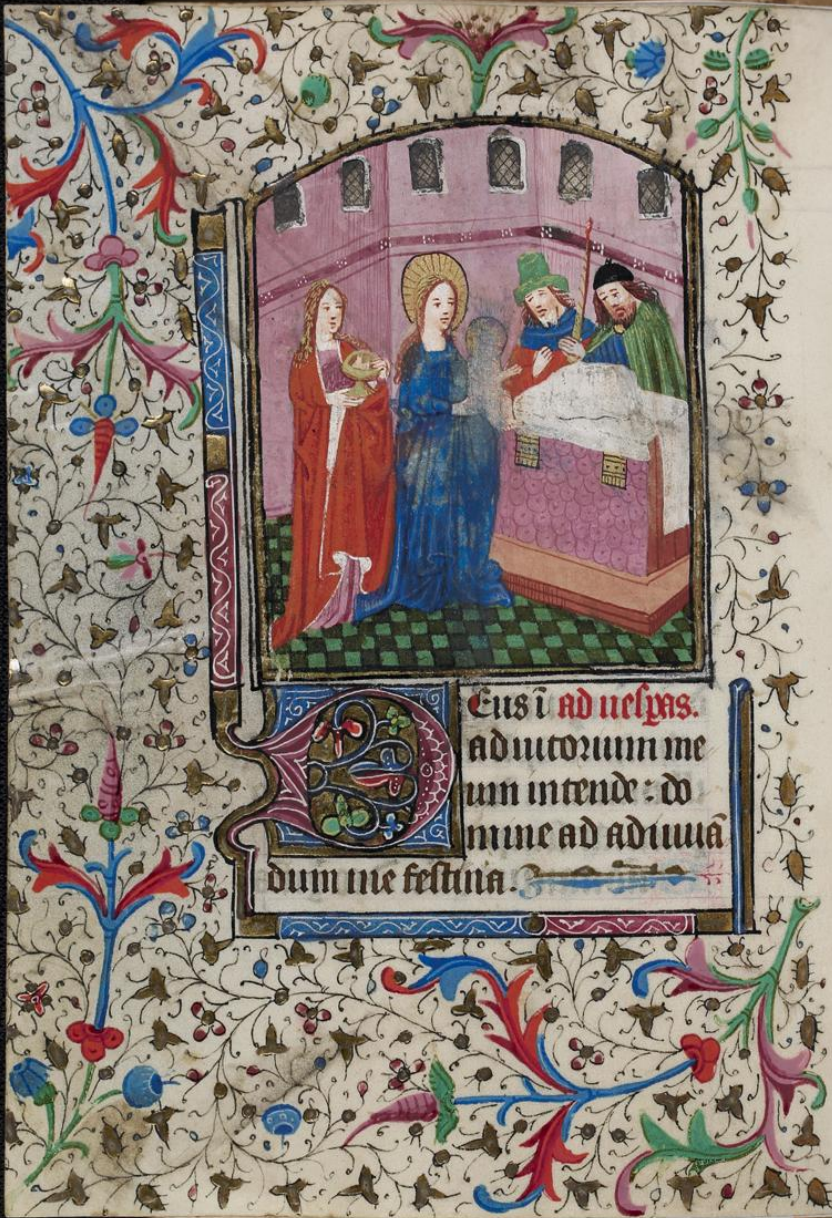 Eus ī ad uesp̄as.
adiutorium me
um intende : do
mine ad adiuuā
dum me festina.